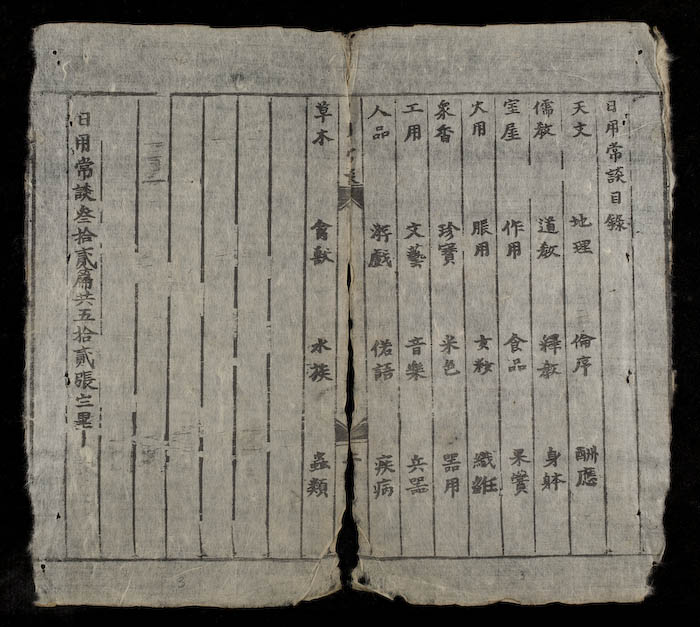 日用常談目錄
天文 地理 倫序 酬應
儒教 道教 釋教 身躰
室屋 作用 食品 果實
火用 服用 女粧 織紝
衆香 珍寶 米色 器用
工用 文藝 音樂 兵器
人品 游戲 俗語 疾病
草木 禽獸 水族 蟲類
日用常談叁拾貳篇共五拾貳張畢
3